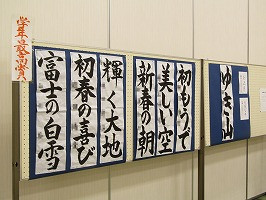 学年最高賞
初もうで
美しい空
新春の朝
輝く大地
初春の喜び
富士の白雪
ゆき山